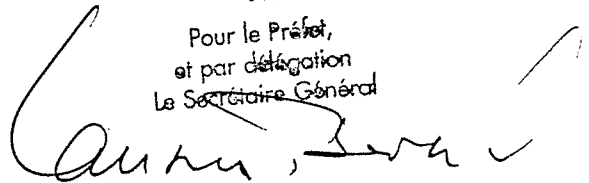 Pour le Préfet,
et par délégation
Le Secrétaire Général